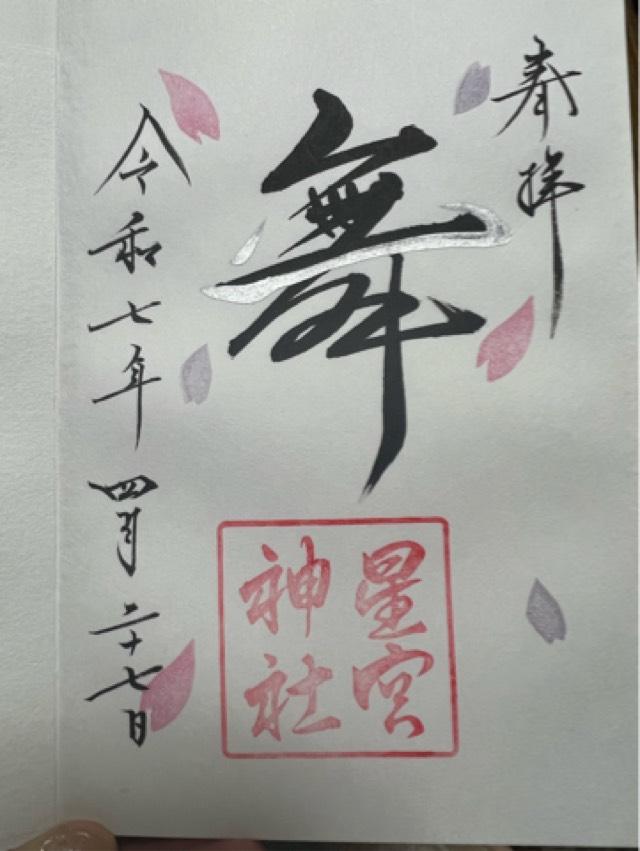 奉拝
舞
星宮
神社
令和七年四月二十七日